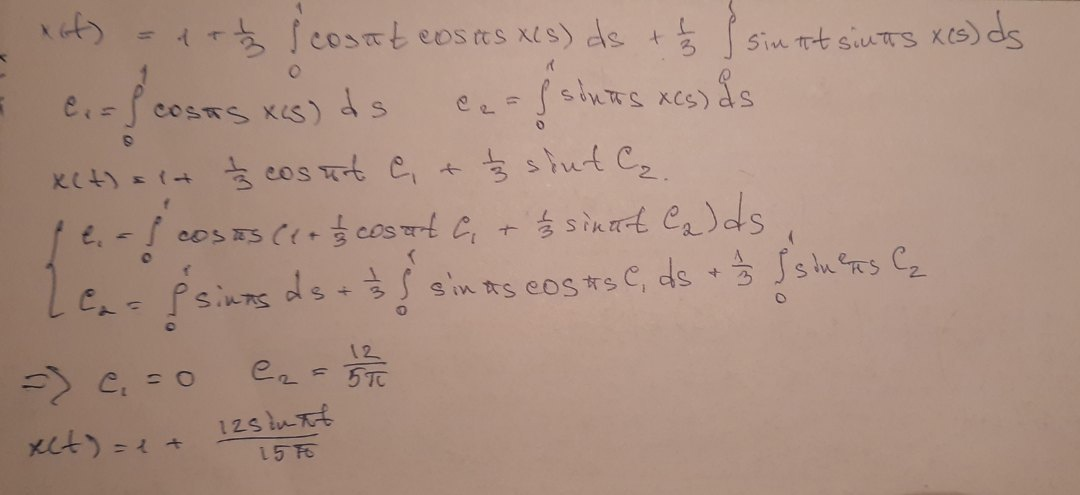 x(t) = 1 + 1/3 ∫₀¹ cosπt cosπs x(s) ds + 1/3 ∫₀¹ sin πt sinπs x(s) ds
C₁ = ∫₀¹ cosπs x(s) ds   C₂ = ∫₀¹ sinπs x(s) ds
x(t) = 1 + 1/3 cosπt C₁ + 1/3 sint C₂.
{ C₁ = ∫₀¹ cosπs (1 + 1/3 cosπt C₁ + 1/3 sinπt C₂) ds
C₂ = ∫₀¹ sinπs ds + 1/3 ∫₀¹ sinπs cosπs C₁ ds + 1/3 ∫₀¹ sin²πs C₂
=> C₁ = 0   C₂ = 12/5π
x(t) = 1 + 12sinπt/15π